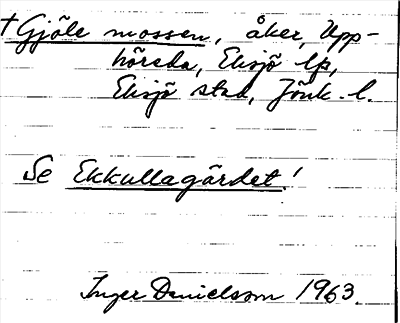 †Gjöle mossen, åker, Upp-
hörda, Eksjö lfs,
Eksjö stad, Jönk. l.
Se Ekkullagärdet!
Inger Danielsson 1963.